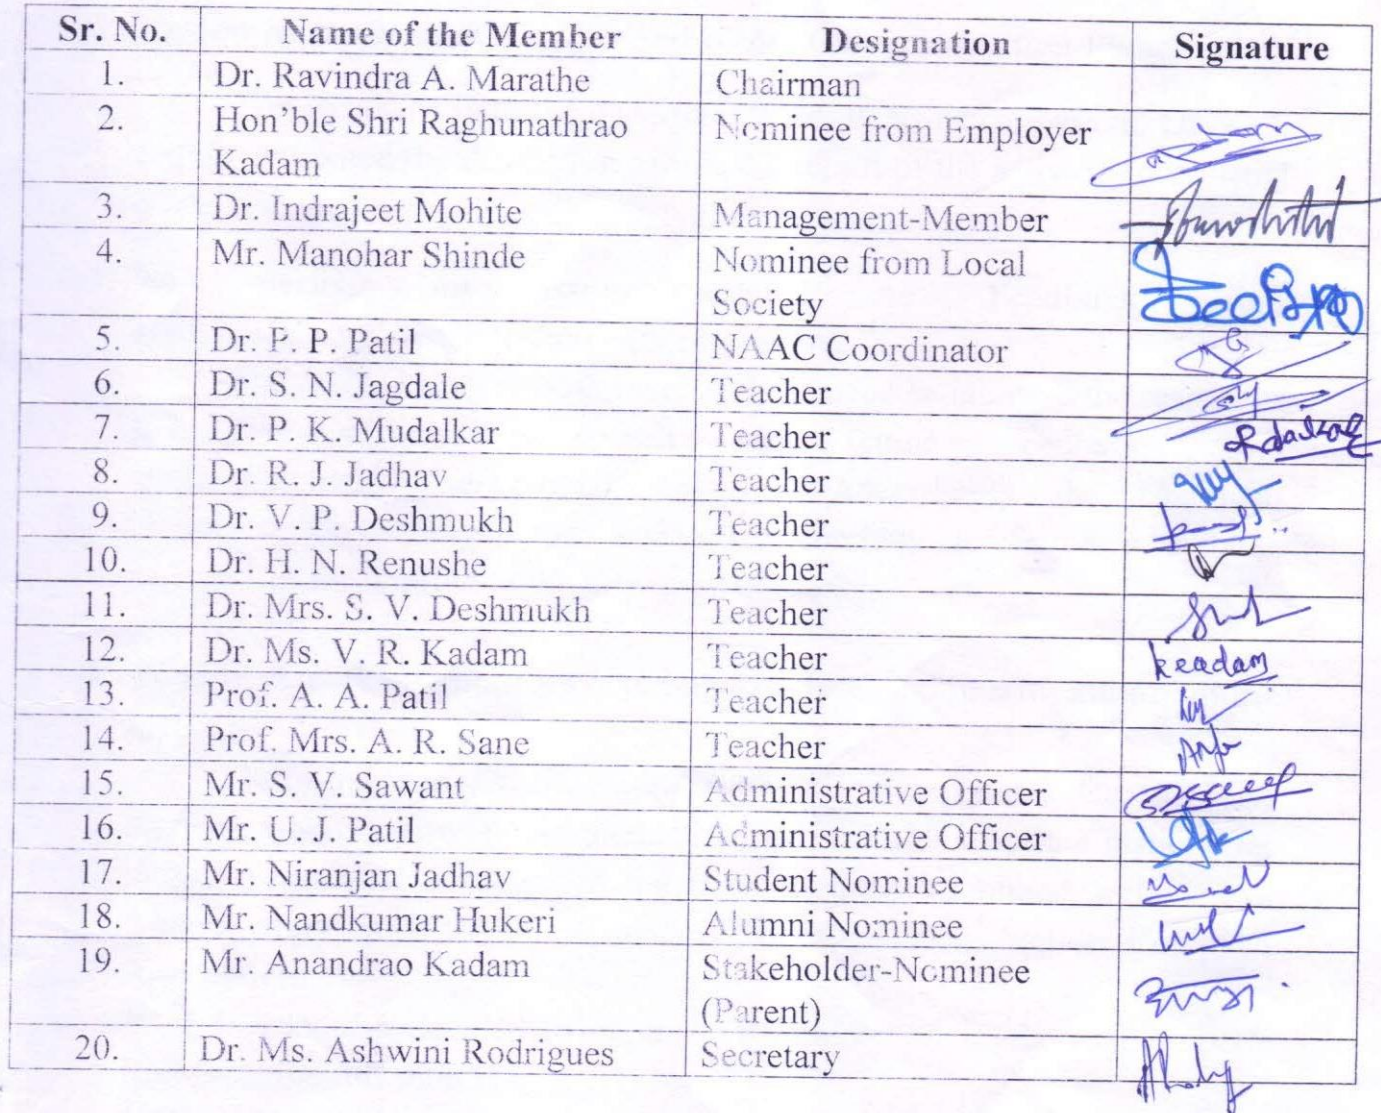 Sr. No. Name of the Member Designation Signature
1. Dr. Ravindra A. Marathe Chairman
2. Hon'ble Shri Raghunathrao Nominee from Employer
Kadam
3. Dr. Indrajeet Mohite Management-Member
4. Mr. Manohar Shinde Nominee from Local
Society
5. Dr. P. P. Patil NAAC Coordinator
6. Dr. S. N. Jagdale Teacher
7. Dr. P. K. Mudalkar Teacher
8. Dr. R. J. Jadhav Teacher
9. Dr. V. P. Deshmukh Teacher
10. Dr. H. N. Renushe Teacher
11. Dr. Mrs. S. V. Deshmukh Teacher
12. Dr. Ms. V. R. Kadam Teacher keadam
13. Prof. A. A. Patil Teacher
14. Prof. Mrs. A. R. Sane Teacher
15. Mr. S. V. Sawant Administrative Officer
16. Mr. U. J. Patil Administrative Officer
17. Mr. Niranjan Jadhav Student Nominee
18. Mr. Nandkumar Hukeri Alumni Nominee
19. Mr. Anandrao Kadam Stakeholder-Nominee
(Parent)
20. Dr. Ms. Ashwini Rodrigues Secretary